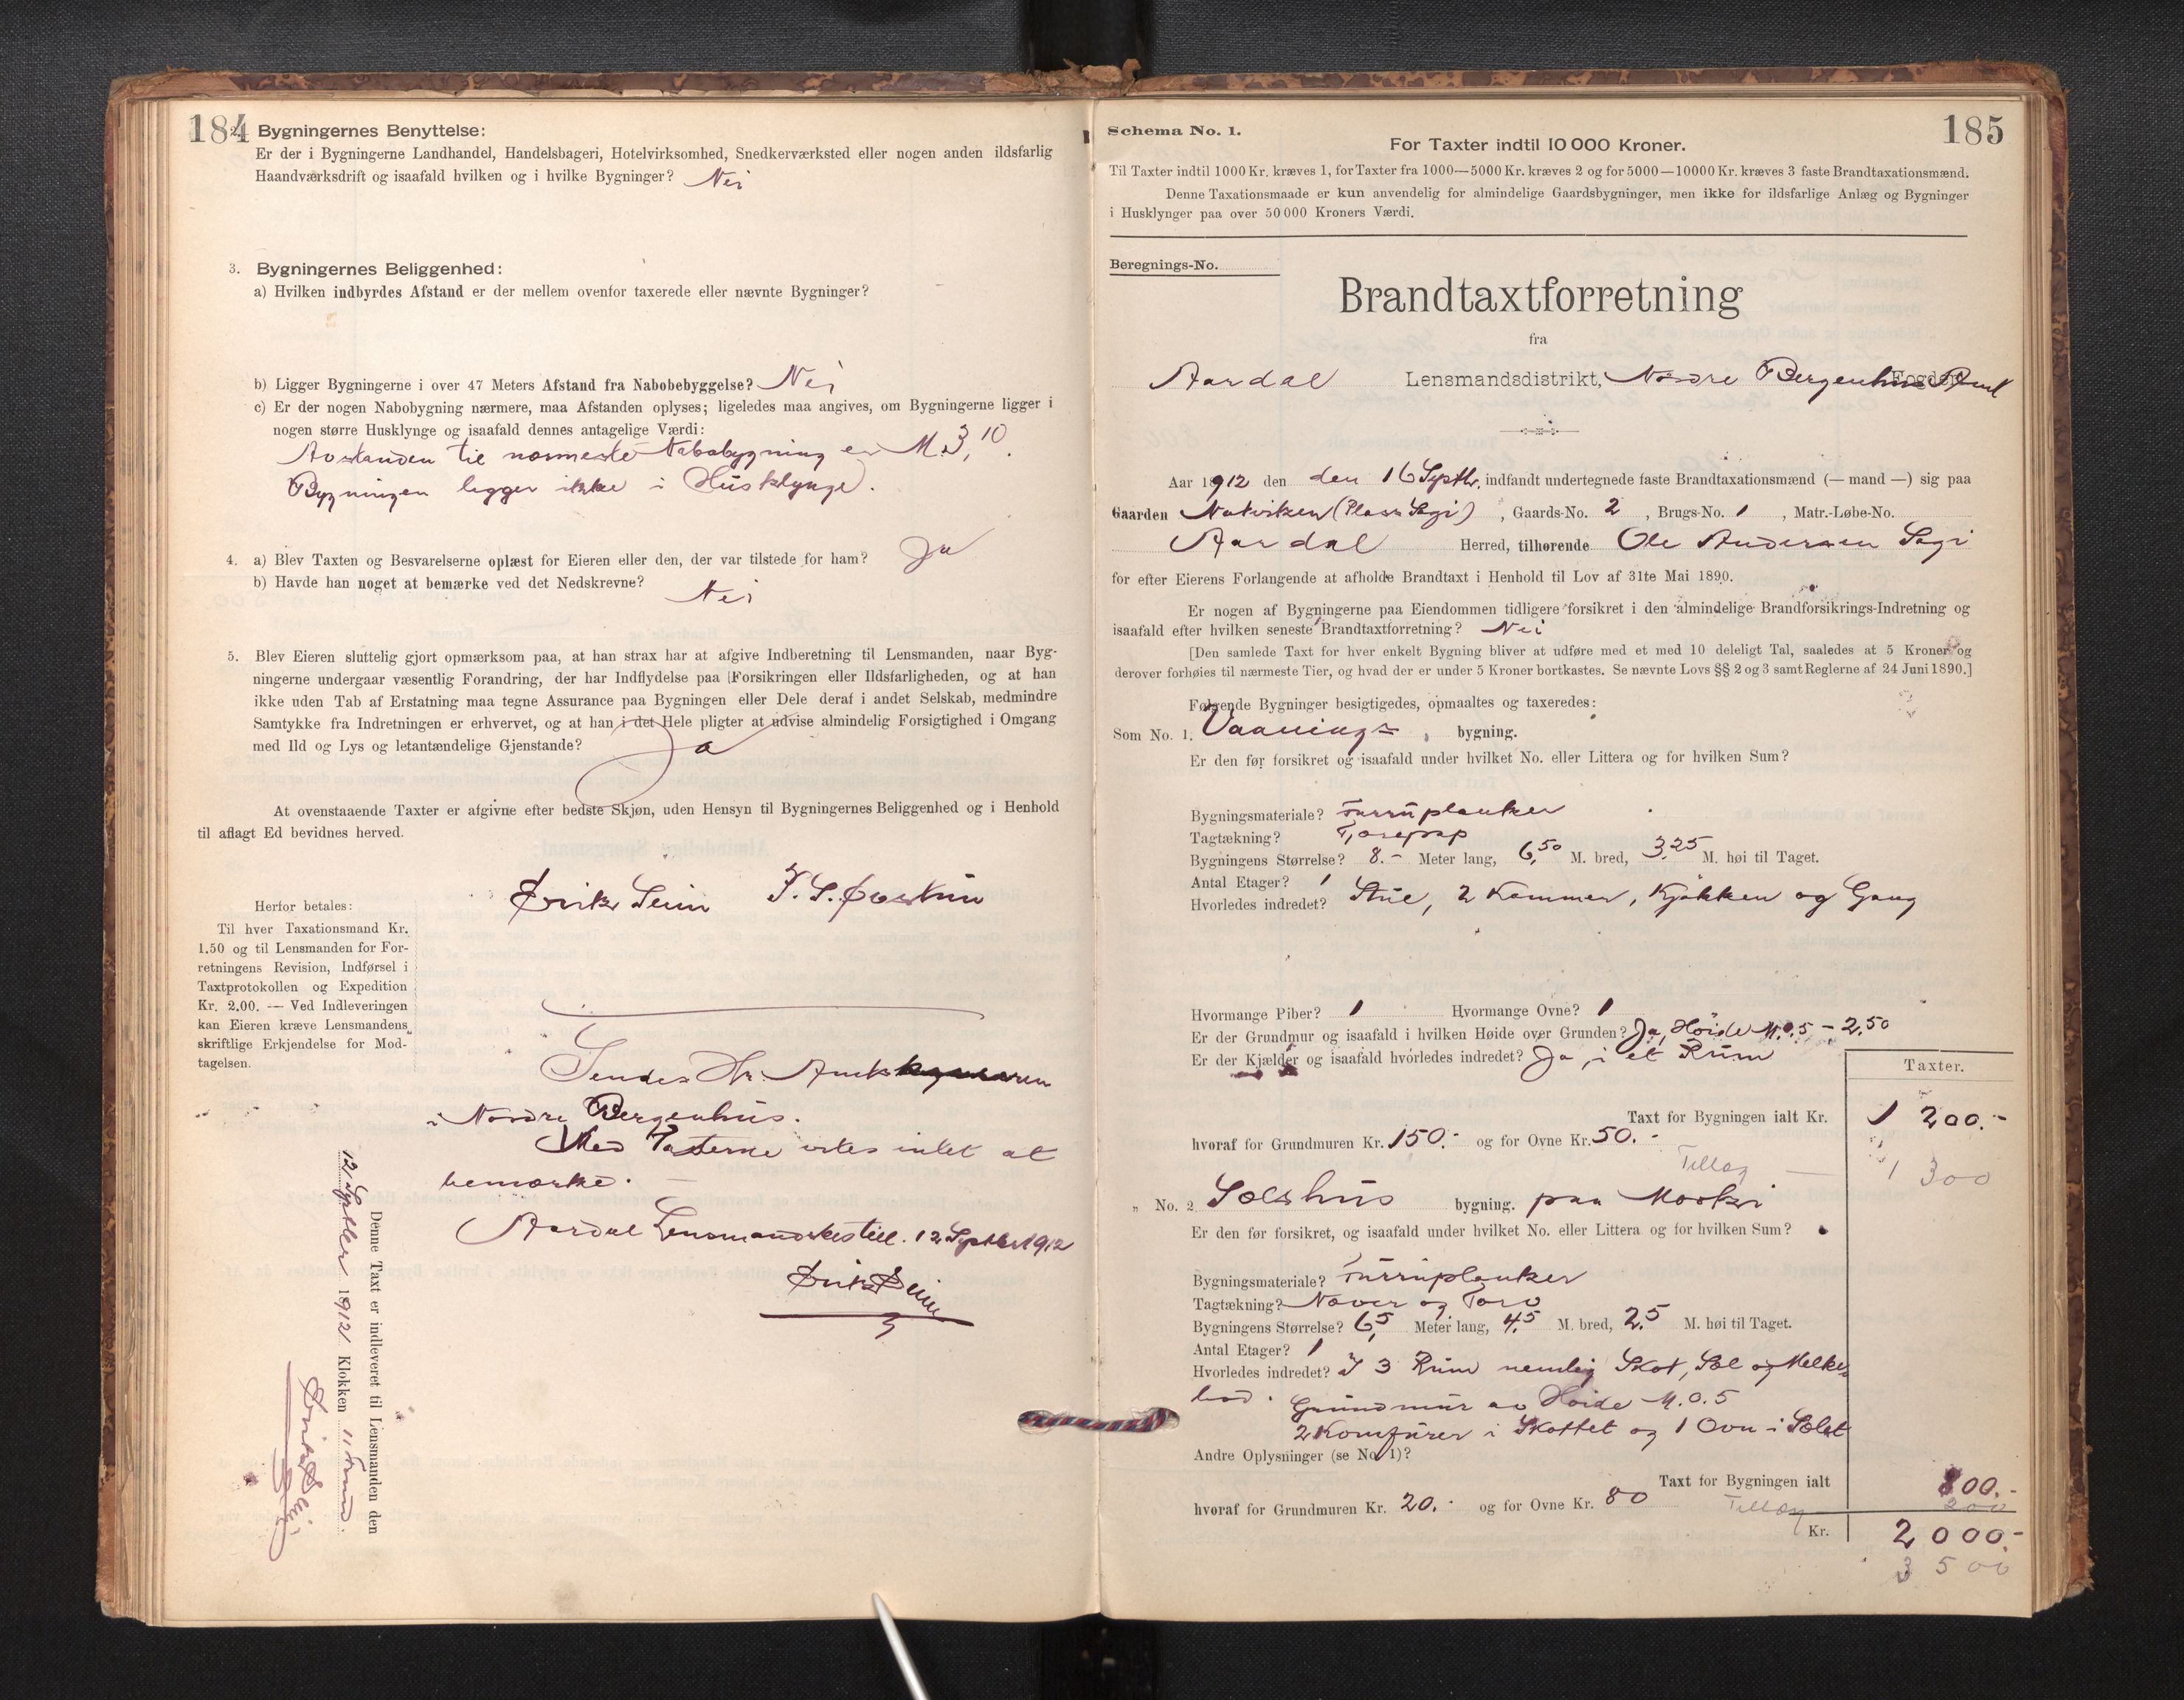 184
2. Bygningernes Benyttelse:
Er der i Bygningerne Landhandel, Handelsbageri, Hotelvirksomhed, Snedkerværksted eller nogen anden ildsfarlig
Haandværksdrift og isaafald hvilken og i hvilke Bygninger? Nei
3. Bygningernes Beliggenhed:
a) Hvilken indbyrdes Afstand er der mellem ovenfor taxerede eller nævnte Bygninger?
b) Ligger Bygningerne i over 47 Meters Afstand fra Nabobebyggelse? Nei
c) Er der nogen Nabobygning nærmere, maa Afstanden oplyses; ligeledes maa angives, om Bygningerne ligger i
nogen større Husklynge og isaafald dennes antagelige Værdi:
Avstanden til nærmeste Nabobygning er M. 3,10.
Bygningen ligger ikke i Husklynge.
4. a) Blev Taxten og Besvarelserne oplæst for Eieren eller den, der var tilstede for ham? Ja
b) Havde han noget at bemærke ved det Nedskrevne? Nei
5. Blev Eieren sluttelig gjort opmærksom paa, at han strax har at afgive Indberetning til Lensmanden, naar Byg-
ningerne undergaar væsentlig Forandring, der har Indflydelse paa Forsikringen eller Ildsfarligheden, og at han
ikke uden Tab af Erstatning maa tegne Assurance paa Bygningen eller Dele deraf i andet Selskab, medmindre
Samtykke fra Indretningen er erhvervet, og at han i det Hele pligter at udvise almindelig Forsigtighed i Omgang
med Ild og Lys og letantændelige Gjenstande? Ja
At ovenstaaende Taxter er afgivne efter bedste Skjøn, uden Hensyn til Bygningernes Beliggenhed og i Henhold
til aflagt Ed bevidnes herved.
Erik Seim
Herfor betales:
Til hver Taxationsmand Kr.
1.50 og til Lensmanden for For-
retningens Revision, Indførsel i
Taxtprotokollen og Expedition
Kr. 2.00. — Ved Indleveringen
kan Eieren kræve Lensmandens
skriftlige Erkjendelse for Mod-
tagelsen.
Sendes Hr.
i Nordre Bergenhus.
Med Taxterne vites intet at
bemærke.
Aardal Lensmandsbestill. 12 Septbr 1912
Erik Seim
Denne Taxt er indleveret til Lensmanden den
12 Septber 1912 Klokken 11 Form.
Erik Seim
Schema No. 1.
185
For Taxter indtil 10 000 Kroner.
Til Taxter indtil 1000 Kr. kræves 1, for Taxter fra 1000—5000 Kr. kræves 2 og for 5000—10000 Kr. kræves 3 faste Brandtaxationsmænd.
Denne Taxationsmaade er kun anvendelig for almindelige Gaardsbygninger, men ikke for ildsfarlige Anlæg og Bygninger
i Husklynger paa over 50 000 Kroners Værdi.
Beregnings-No.
Brandtaxtforretning
fra
Aardal Lensmandsdistrikt, Nordre Bergenhus Amt
Aar 1912 den den 16 Septbr. indfandt undertegnede faste Brandtaxationsmænd (— mand —) sig paa
Gaarden Natviken (Plass Sagi), Gaards-No. 2, Brugs-No. 1, Matr.-Løbe-No.
Aardal Herred, tilhørende Ole Andersen Sagi
for efter Eierens Forlangende at afholde Brandtaxt i Henhold til Lov af 31te Mai 1890.
Er nogen af Bygningerne paa Eiendommen tidligere forsikret i den almindelige Brandforsikrings-Indretning og
isaafald efter hvilken seneste Brandtaxtforretning? Nei
[Den samlede Taxt for hver enkelt Bygning bliver at udføre med et med 10 deleligt Tal, saaledes at 5 Kroner og
derover forhøies til nærmeste Tier, og hvad der er under 5 Kroner bortkastes. Se nævnte Lovs §§ 2 og 3 samt Reglerne af 24 Juni 1890.]
Følgende Bygninger besigtigedes, opmaaltes og taxeredes:
Som No. 1. Vaanings- bygning.
Er den før forsikret og isaafald under hvilket No. eller Littera og for hvilken Sum?
Bygningsmateriale? Furruplanker
Tagtækning? Tjærepap
Bygningens Størrelse? 8.- Meter lang, 6,50 M. bred, 3,25 M. høi til Taget.
Antal Etager? 1
Hvorledes indredet? Stue, 2 Kammer, Kjøkken og Gang
Hvormange Piber? 1 Hvormange Ovne? 1
Er der Grundmur og isaafald i hvilken Høide over Grunden? Ja, Høide M. 0.5 - 2.50
Er der Kjælder og isaafald hvorledes indredet? Ja, i et Rum
Taxter.
Taxt for Bygningen ialt Kr. 1 200.-
hvoraf for Grundmuren Kr. 150.- og for Ovne Kr. 50.-
Tillæg — 1 300
" No. 2 Sælshus bygning. paa Morki
Er den før forsikret, og isaafald under hvilket No. eller Littera og for hvilken Sum?
Bygningsmateriale? Furruplanker
Tagtækning? Næver og Torv
Bygningens Størrelse? 6,5 Meter lang, 4,5 M. bred, 2,5 M. høi til Taget.
Antal Etager? 1
Hvorledes indredet? I 3 Rum nemlig Skot, Sæl og Melke-
bod. Grundmur av Høide M. 0.5
2 Komfurer i Skottet og 1 Ovn i Sælet
Andre Oplysninger (se No. 1)?
Taxt for Bygningen ialt 800.-
hvoraf for Grundmuren Kr. 20.- og for Ovne Kr. 80
Tillæg 200
Kr. 2 000.-
3 500